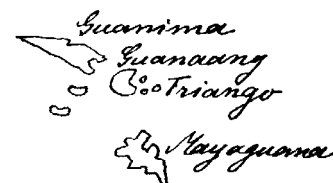 Guanima
Guanaang
Triango
Mayaguana